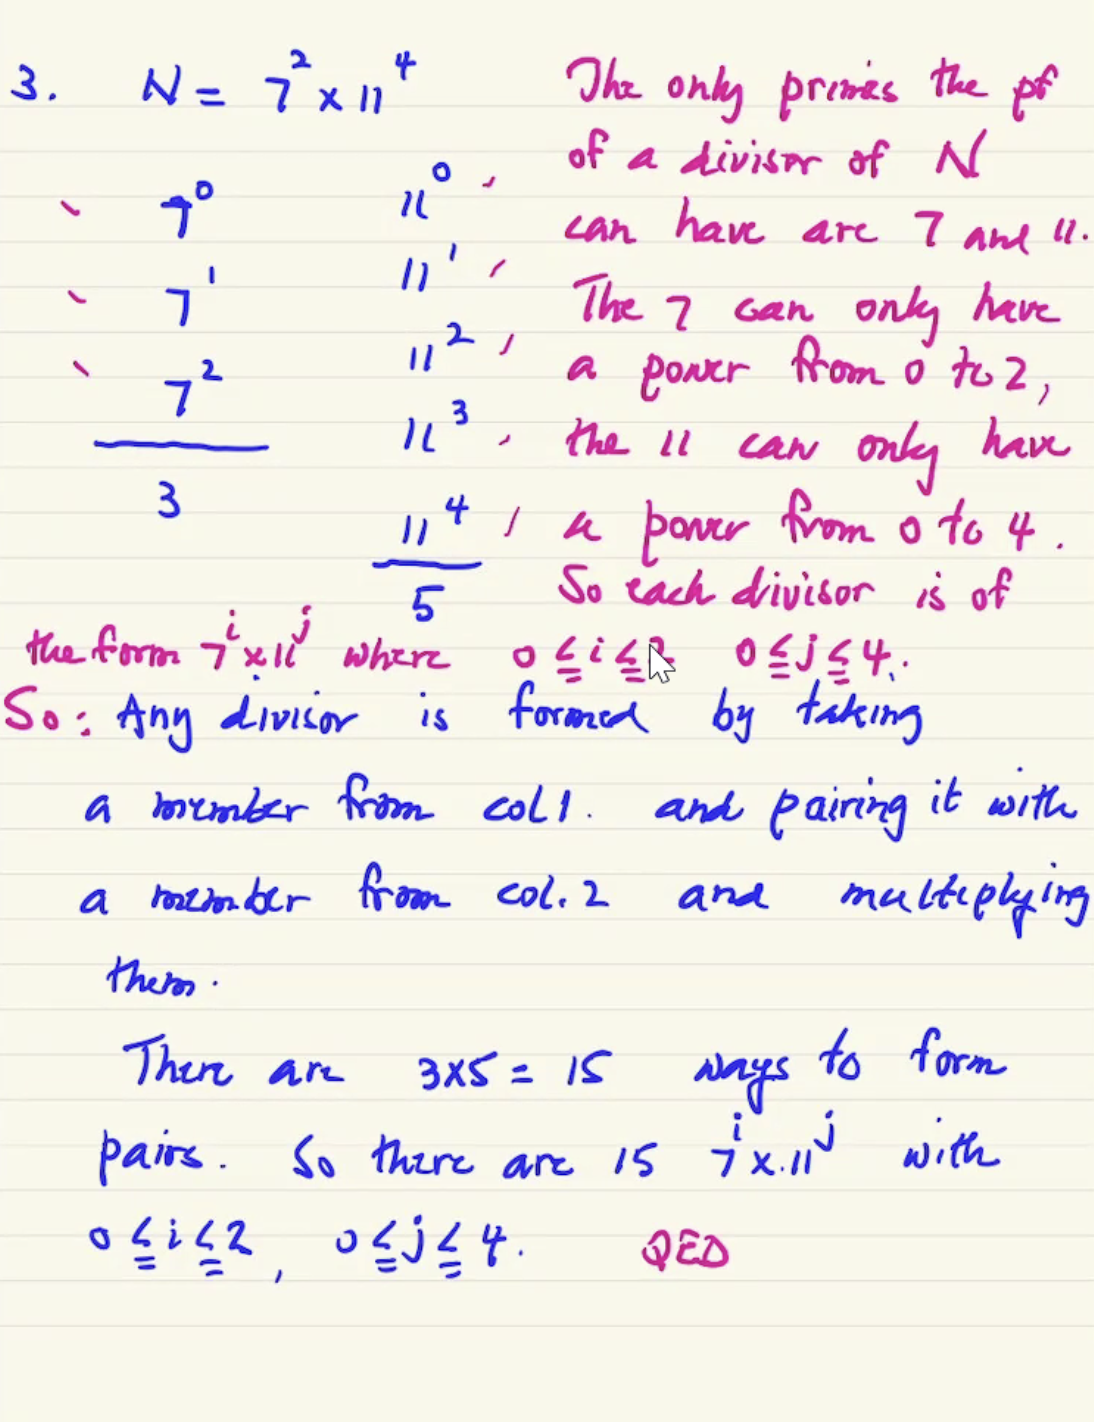 3. N = 7² × 11⁴
The only primes the pf
of a divisor of N
can have are 7 and 11.
The 7 can only have
a power from 0 to 2,
the 11 can only have
a power from 0 to 4.
So each divisor is of
7⁰ 11⁰
7¹ 11¹
7² 11²
3 11³
11⁴
5
the form 7ⁱ × 11ʲ where 0 ≦ i ≦ 2 0 ≦ j ≦ 4.
So: Any divisor is formed by taking
a member from col 1. and pairing it with
a member from col. 2 and multiplying
them.
There are 3×5 = 15 ways to form
pairs. So there are 15 7ⁱ × 11ʲ with
0 ≦ i ≦ 2, 0 ≦ j ≦ 4. QED